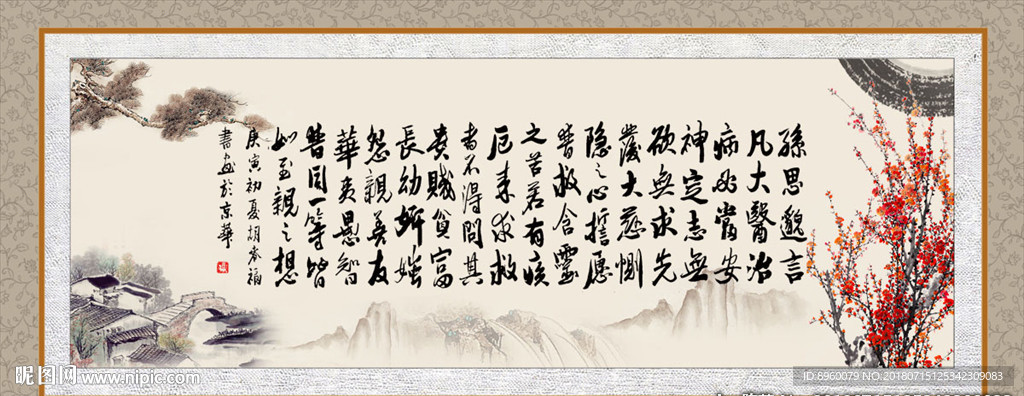 孫思邈言
凡大醫治
病必當安
神定志無
欲無求先
發大慈惻
隐之心誓愿
普救含靈
之苦若有疾
厄来求救
者不得問其
貴賤貧富
長幼妍媸
怨親善友
華夷愚智
普同一等皆
如至親之想
庚寅初夏胡春福
書畫於京華
昵图网 www.nipic.com
ID:6960079 NO:20180715125342309083